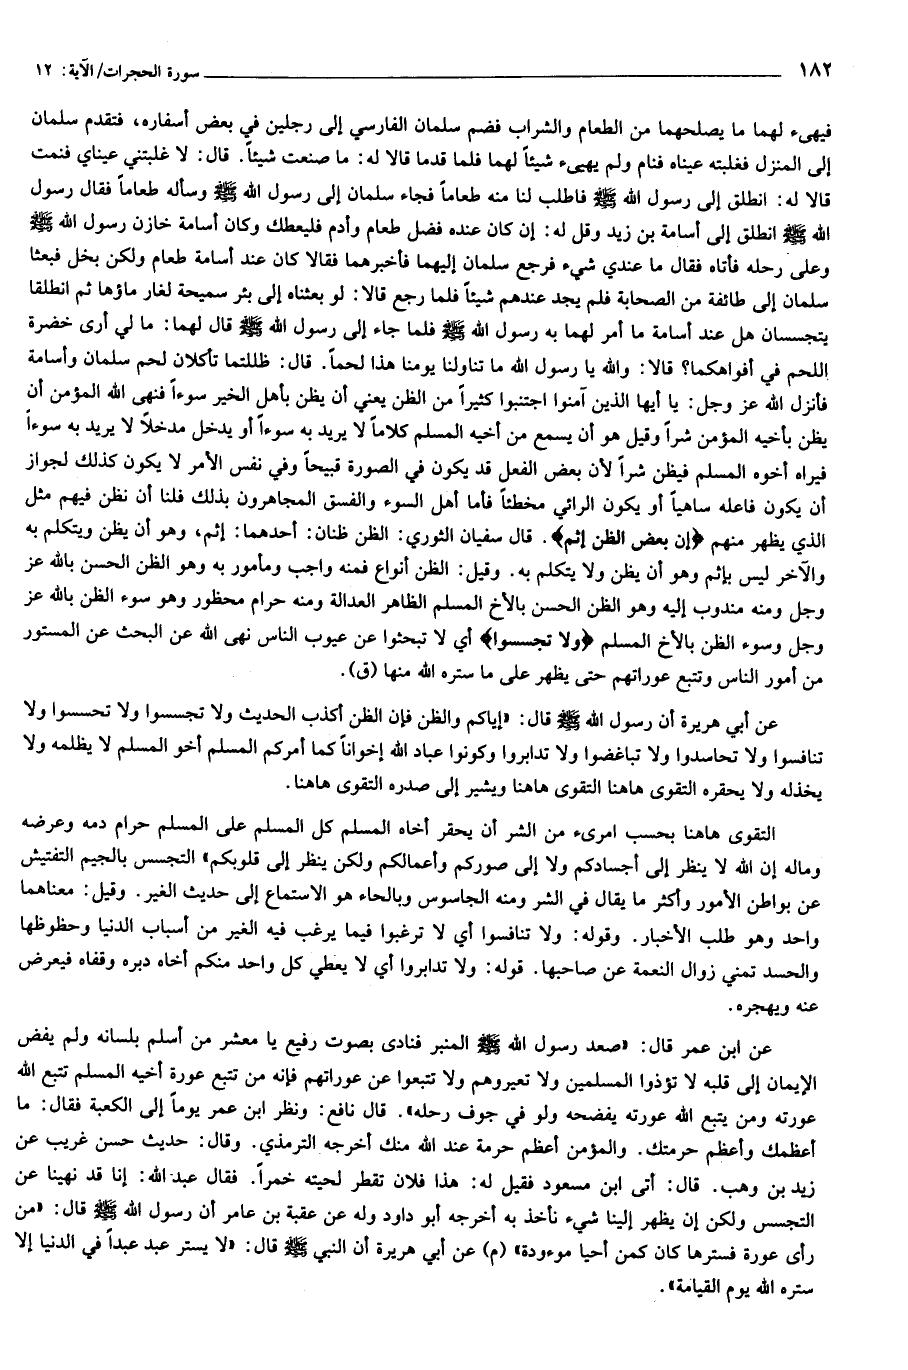 ١٨٢ سورة الحجرات/ الآية: ١٢
فيهيء لهما ما يصلحهما من الطعام والشراب فضم سلمان الفارسي إلى رجلين في بعض أسفاره، فتقدم سلمان
إلى المنزل فغلبته عيناه فنام ولم يهيىء شيئاً لهما فلما قدما قالا له: ما صنعت شيئاً. قال: لا غلبتني عيناي فنمت
قالا له: انطلق إلى رسول الله ﷺ فاطلب لنا منه طعاماً فجاء سلمان إلى رسول الله ﷺ وسأله طعاماً فقال رسول
الله ﷺ انطلق إلى أسامة بن زيد وقل له: إن كان عنده فضل طعام وأدم فليعطك وكان أسامة خازن رسول الله ﷺ
وعلى رحله فأتاه فقال ما عندي شيء فرجع سلمان إليهما فأخبرهما فقالا كان عند أسامة طعام ولكن بخل فبعثا
سلمان إلى طائفة من الصحابة فلم يجد عندهم شيئاً فلما رجع قالا: لو بعثناه إلى بئر سميحة لغار ماؤها ثم انطلقا
يتجسسان هل عند أسامة ما أمر لهما به رسول الله ﷺ فلما جاء إلى رسول الله ﷺ قال لهما: ما لي أرى خضرة
اللحم في أفواهكما؟ قالا: والله يا رسول الله ما تناولنا يومنا هذا لحماً. قال: ظللتما تأكلان لحم سلمان وأسامة
فأنزل الله عز وجل: يا أيها الذين آمنوا اجتنبوا كثيراً من الظن يعني أن يظن بأهل الخير سوءاً فنهى الله المؤمن أن
يظن بأخيه المؤمن شراً وقيل هو أن يسمع من أخيه المسلم كلاماً لا يريد به سوءاً أو يدخل مدخلاً لا يريد به سوءاً
فيراه أخوه المسلم فيظن شراً لأن بعض الفعل قد يكون في الصورة قبيحاً وفي نفس الأمر لا يكون كذلك لجواز
أن يكون فاعله ساهياً أو يكون الرائي مخطئاً فأما أهل السوء والفسق المجاهرون بذلك فلنا أن نظن فيهم مثل
الذي يظهر منهم ﴿إن بعض الظن إثم﴾. قال سفيان الثوري: الظن ظنان: أحدهما: إثم، وهو أن يظن ويتكلم به
والآخر ليس بإثم وهو أن يظن ولا يتكلم به. وقيل: الظن أنواع فمنه واجب ومأمور به وهو الظن الحسن بالله عز
وجل ومنه مندوب إليه وهو الظن الحسن بالأخ المسلم الظاهر العدالة ومنه حرام محظور وهو سوء الظن بالله عز
وجل وسوء الظن بالأخ المسلم ﴿ولا تجسسوا﴾ أي لا تبحثوا عن عيوب الناس نهى الله عن البحث عن المستور
من أمور الناس وتتبع عوراتهم حتى يظهر على ما ستره الله منها (ق).
عن أبي هريرة أن رسول الله ﷺ قال: «إياكم والظن فإن الظن أكذب الحديث ولا تجسسوا ولا تحسسوا ولا
تنافسوا ولا تحاسدوا ولا تباغضوا ولا تدابروا وكونوا عباد الله إخواناً كما أمركم المسلم أخو المسلم لا يظلمه ولا
يخذله ولا يحقره التقوى هاهنا التقوى هاهنا ويشير إلى صدره التقوى هاهنا.
التقوى هاهنا بحسب امرىء من الشر أن يحقر أخاه المسلم كل المسلم على المسلم حرام دمه وعرضه
وماله إن الله لا ينظر إلى أجسادكم ولا إلى صوركم وأعمالكم ولكن ينظر إلى قلوبكم» التجسس بالجيم التفتيش
عن بواطن الأمور وأكثر ما يقال في الشر ومنه الجاسوس وبالحاء هو الاستماع إلى حديث الغير. وقيل: معناهما
واحد وهو طلب الأخبار. وقوله: ولا تنافسوا أي لا ترغبوا فيما يرغب فيه الغير من أسباب الدنيا وحظوظها
والحسد تمني زوال النعمة عن صاحبها. قوله: ولا تدابروا أي لا يعطي كل واحد منكم أخاه دبره وقفاه فيعرض
عنه ويهجره.
عن ابن عمر قال: «صعد رسول الله ﷺ المنبر فنادى بصوت رفيع يا معشر من أسلم بلسانه ولم يفض
الإيمان إلى قلبه لا تؤذوا المسلمين ولا تعيروهم ولا تتبعوا عن عوراتهم فإنه من تتبع عورة أخيه المسلم تتبع الله
عورته ومن يتبع الله عورته يفضحه ولو في جوف رحله». قال نافع: ونظر ابن عمر يوماً إلى الكعبة فقال: ما
أعظمك وأعظم حرمتك. والمؤمن أعظم حرمة عند الله منك أخرجه الترمذي. وقال: حديث حسن غريب عن
زيد بن وهب. قال: أتى ابن مسعود فقيل له: هذا فلان تقطر لحيته خمراً. فقال عبد الله: إنا قد نهينا عن
التجسس ولكن إن يظهر إلينا شيء نأخذ به أخرجه أبو داود وله عن عقبة بن عامر أن رسول الله ﷺ قال: «من
رأى عورة فسترها كان كمن أحيا موءودة» (م) عن أبي هريرة أن النبي ﷺ قال: «لا يستر عبد عبداً في الدنيا إلا
ستره الله يوم القيامة».